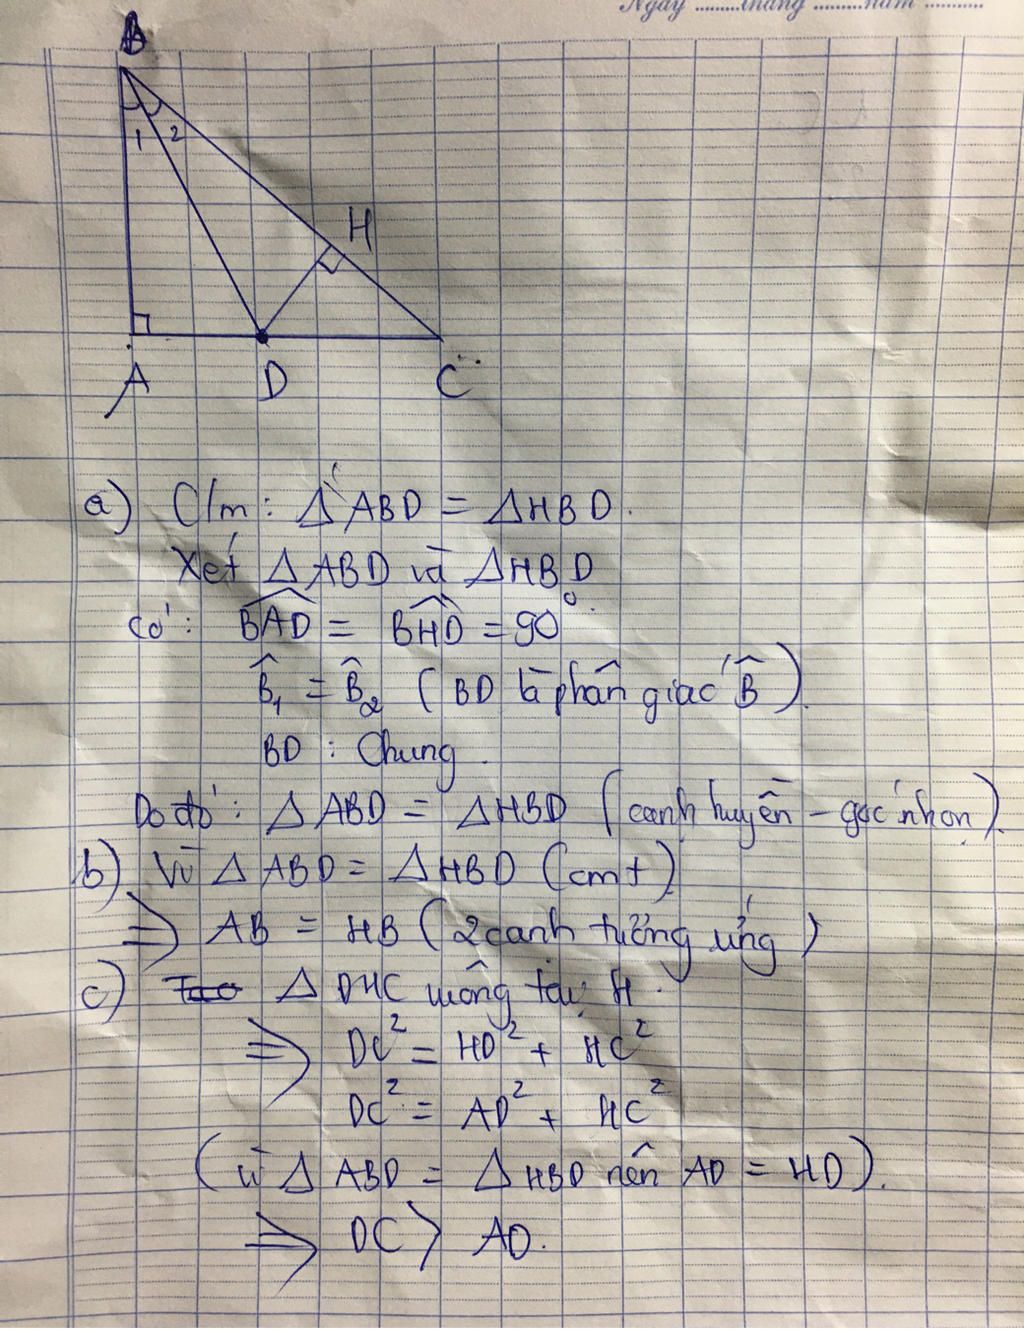 Ngày ......... tháng ......... năm .........
B
1 2
H
A D C
a) C/m: Δ ABD = ΔHBD.
Xét Δ ABD và ΔHBD
Có: BAD = BHD = 90°
B̂₁ = B̂₂ (BD là phân giác B̂).
BD : Chung.
Do đó: Δ ABD = ΔHBD (cạnh huyền - góc nhọn).
b) Vì Δ ABD = ΔHBD (cmt)
=> AB = HB (2 cạnh tương ứng)
c) Δ DHC vuông tại H.
=> DC² = HD² + HC²
DC² = AD² + HC²
(vì Δ ABD = ΔHBD nên AD = HD).
=> DC > AD.